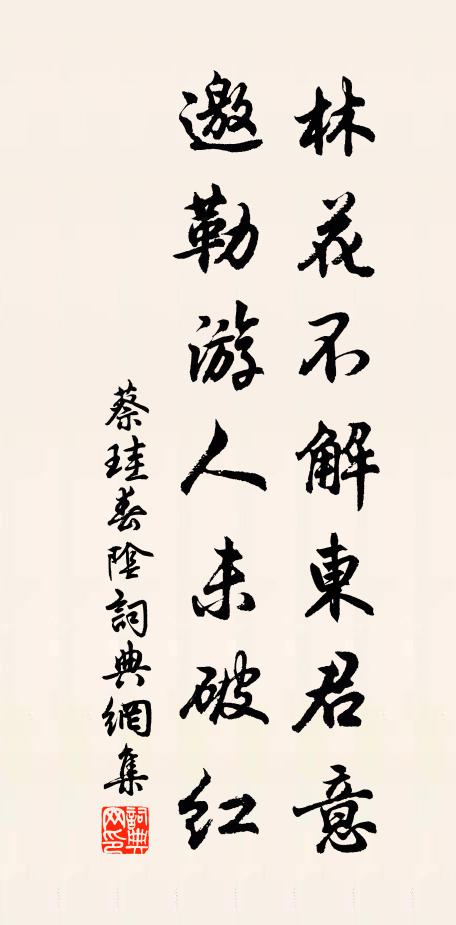 林花不解東君意
邀勒游人未破紅
蔡珪春陰詞典網集
詞典網印